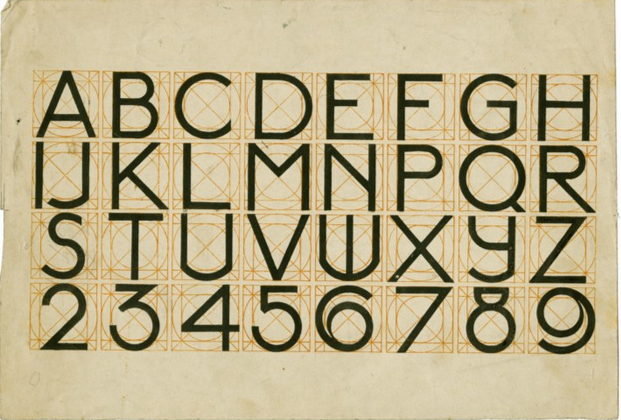 ABCDEFGH
IJKLMNPQR
STUVWXYZ
23456789